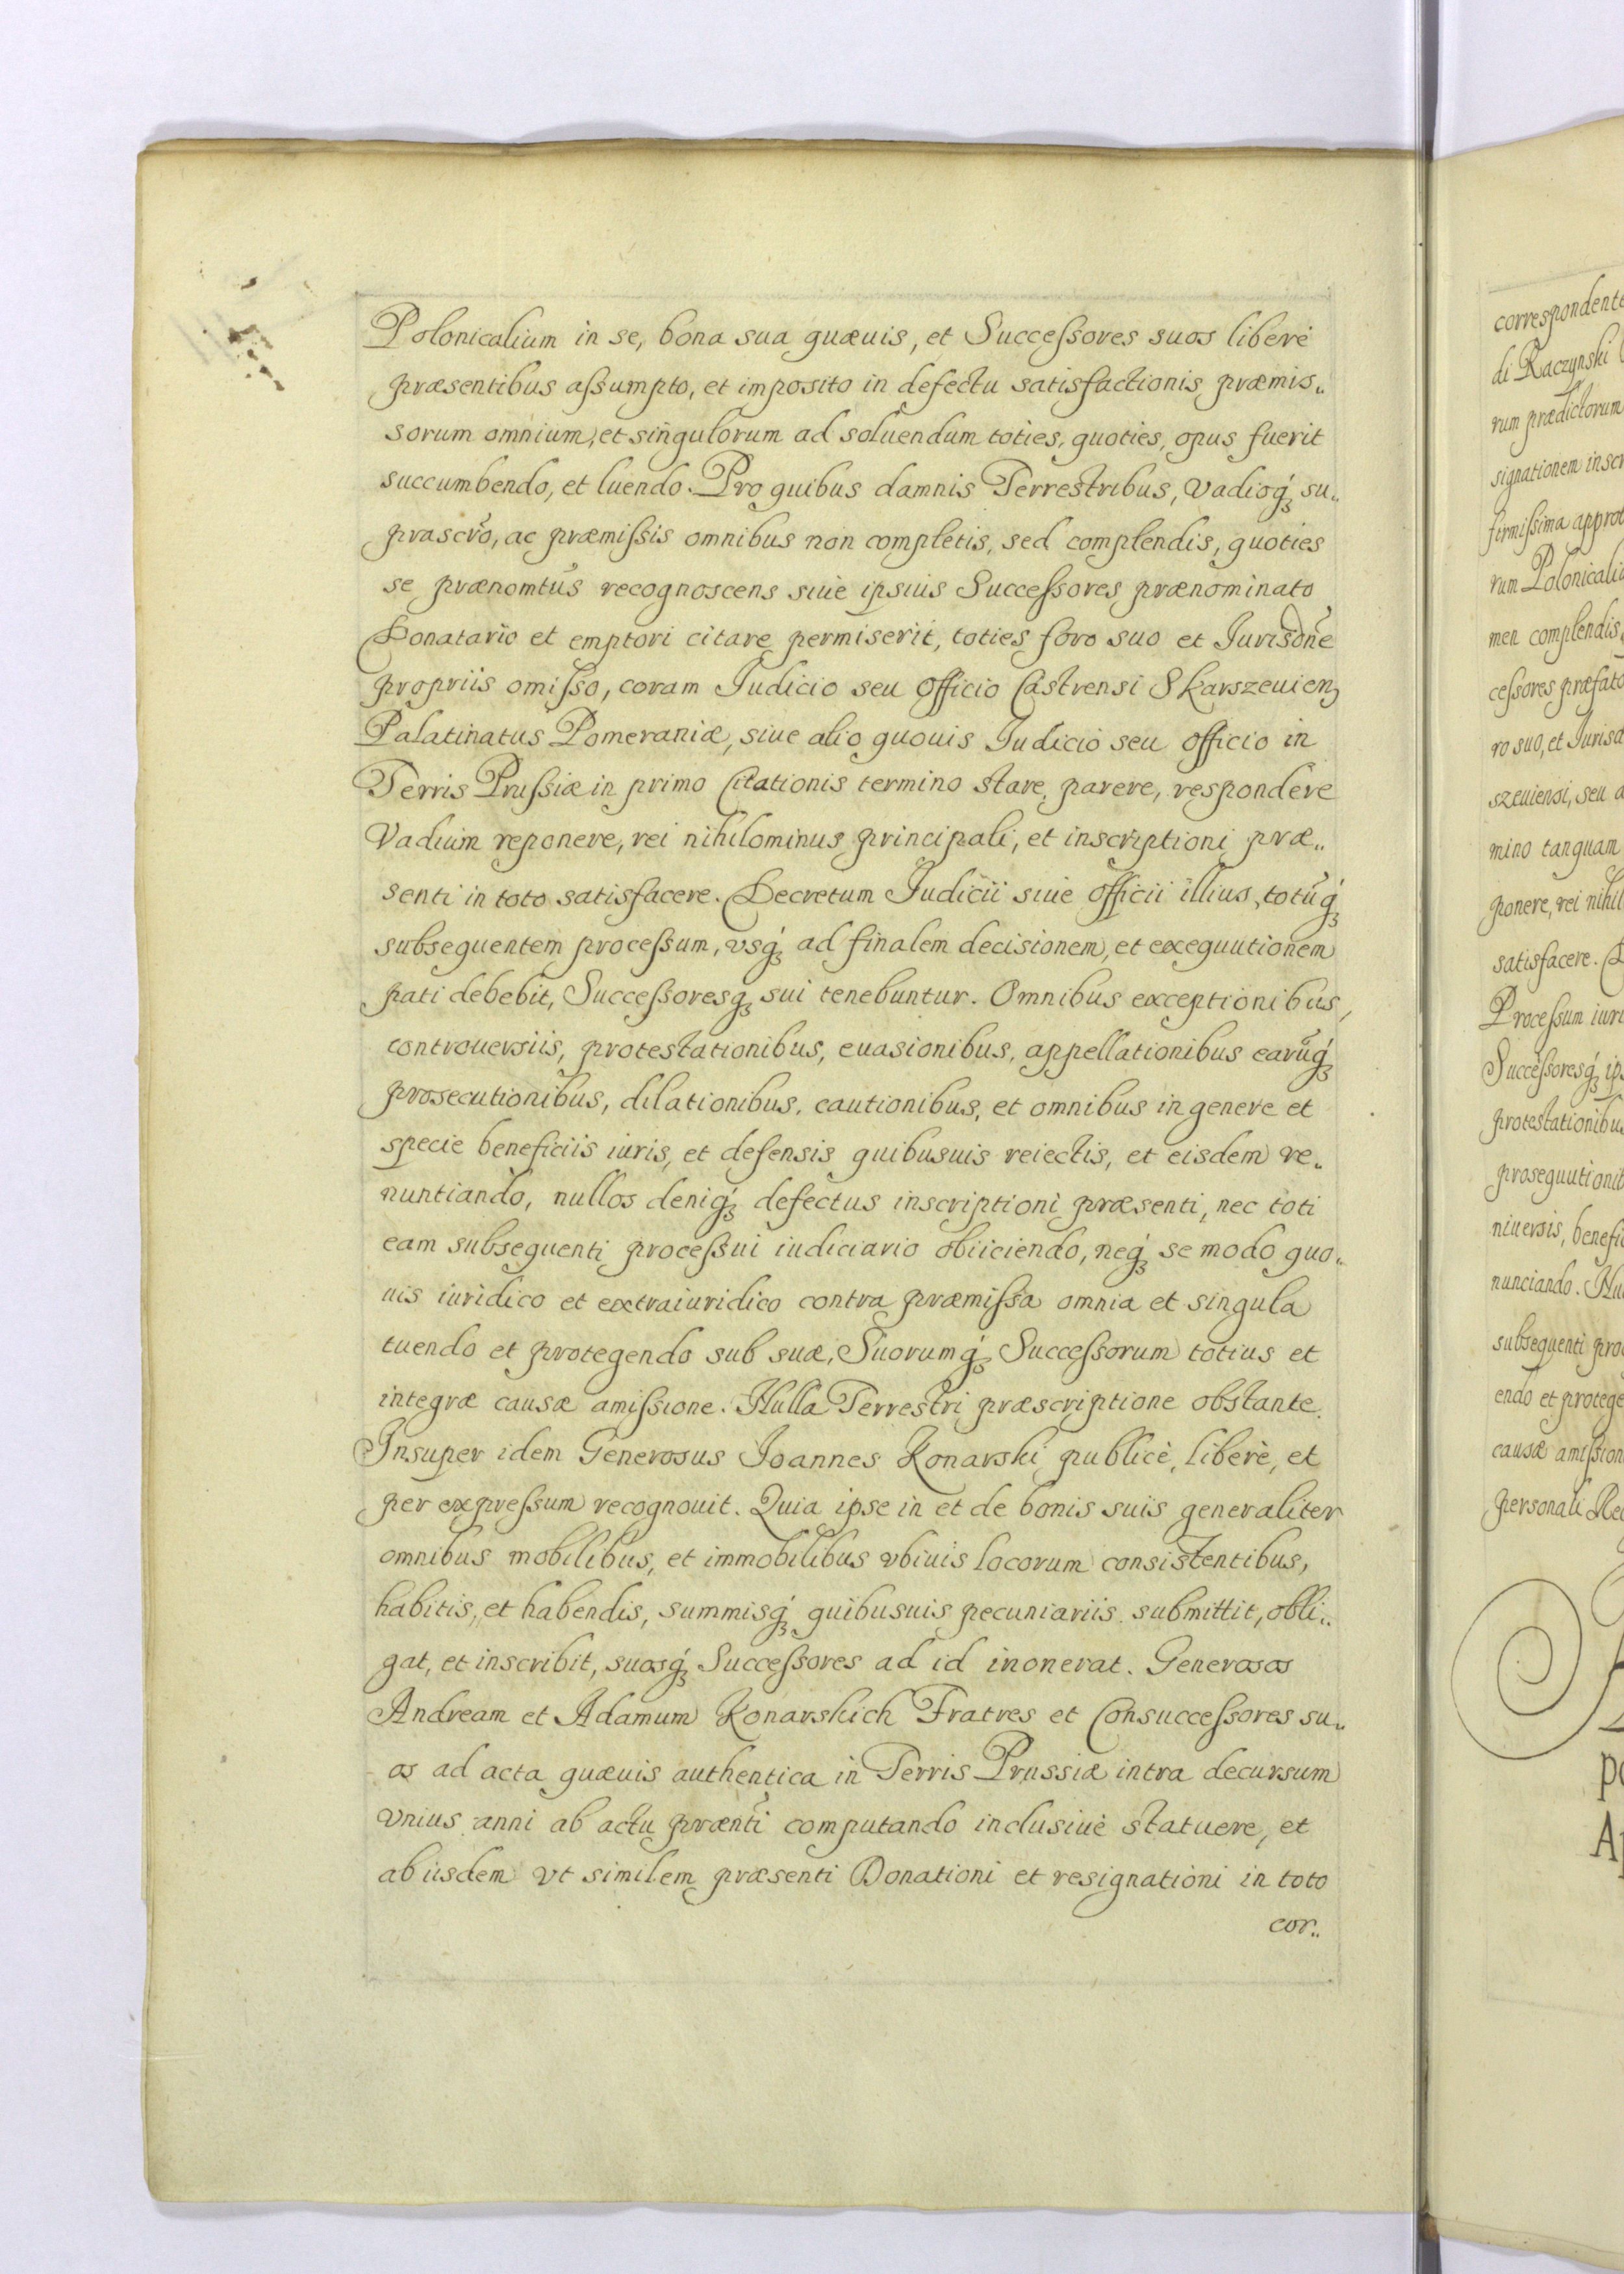 Polonicalium in se, bona sua quæuis, et Successores suos liberè
præsentibus assumpto, et imposito in defectu satisfactionis præmis„
sorum omnium, et singulorum ad soluendum toties, quoties, opus fuerit
succumbendo, et luendo. Pro quibus damnis Terrestribus, Vadioq́ꝫ su„
prascrõ, ac præmissis omnibus non completis, sed complendis, quoties
se prænomtus recognoscens siue ipsius Successores prænominato
Donatario et emptori citare permiserit, toties foro suo et Jurisdõne
propriis omisso, coram Judicio seu officio Castrensi Skarszeuienꝫ
Palatinatus Pomeraniæ, siue alio quouis Judicio seu officio in
Terris Prussiæ in primo Citationis termino stare, parere, respondere
Vadium reponere, rei nihilominus principali, et inscriptioni præ„
senti in toto satisfacere. Decretum Judicii siue officii illius, totũq́ꝫ
subsequentem processum, vsq́ꝫ ad finalem decisionem, et exequutionem
pati debebit, Successoresqꝫ sui tenebuntur. Omnibus exceptionibus,
controuersiis, protestationibus, euasionibus, appellationibus earũq́ꝫ
prosecutionibus, dilationibus, cautionibus, et omnibus in genere et
specie beneficiis iuris, et defensis quibusuis reiectis, et eisdem re„
nuntiando, nullos deniq́ꝫ defectus inscriptioni præsenti, nec toti
eam subsequenti processui iudiciario obiiciendo, neq́ꝫ se modo quo„
uis iuridico et extraiuridico contra præmissa omnia et singula
tuendo et protegendo sub suæ, Suorumq́ꝫ Successorum totius et
integræ causæ amissione. Nulla Terrestri præscriptione obstante.
Insuper idem Generosus Joannes Konarski publicè, liberè, et
per expressum recognouit. Quia ipse in et de bonis suis generaliter
omnibus mobilibus, et immobilibus vbiuis locorum consistentibus,
habitis, et habendis, summisq́ꝫ quibusuis pecuniariis submittit, obli„
gat, et inscribit, suosq́ꝫ Successores ad id inonerat. Generosos
Andream et Adamum Konarskich Fratres et Consuccessores su„
os ad acta quæuis authentica in Terris Prussiæ intra decursum
vnius anni ab actu prænti computando inclusiuè statuere, et
ab iisdem vt similem præsenti Donationi et resignationi in toto
cor„
correspondent
di Raczynski
rum prædictorum
signationem inscr
firmissima approb
rum Polonicali
men complendis,
cessores præfato
ro suo, et Jurisd
szeuiensi, seu a
mino tanquam
ponere, rei nihil
satisfacere. D
Processum iuri
Successoresq́ꝫ ips
protestationibus
prosequutionib
niuersis, benefic
nunciando. Nu
subsequenti pro
endo et protege
causæ amission
personali Rec